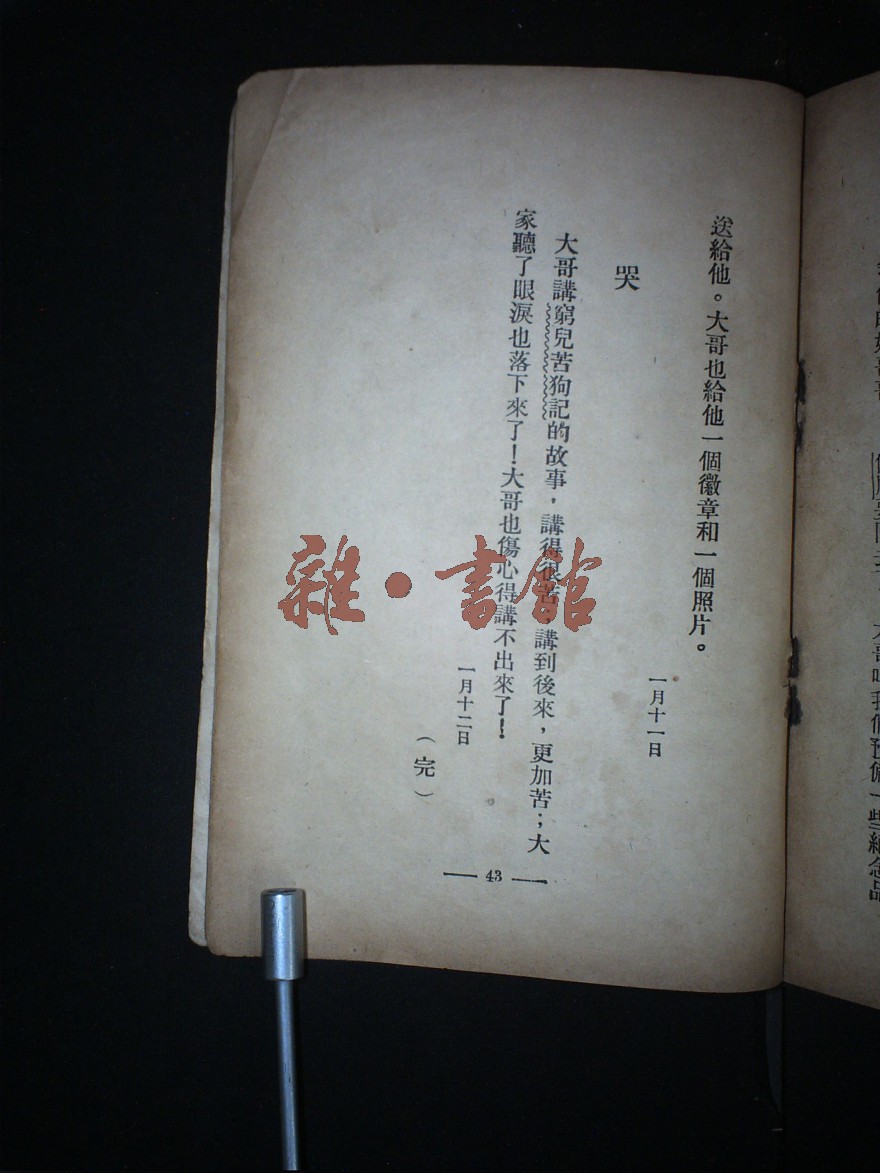 大哥叫我們預備一些紀念品
送給他。大哥也給他一個徽章和一個照片。
一月十一日
哭
大哥講窮兒苦狗記的故事，講得很苦；講到後來，更加苦；大
家聽了眼淚也落下來了！大哥也傷心得講不出來了！
一月十二日
（完）
43
雜·書館